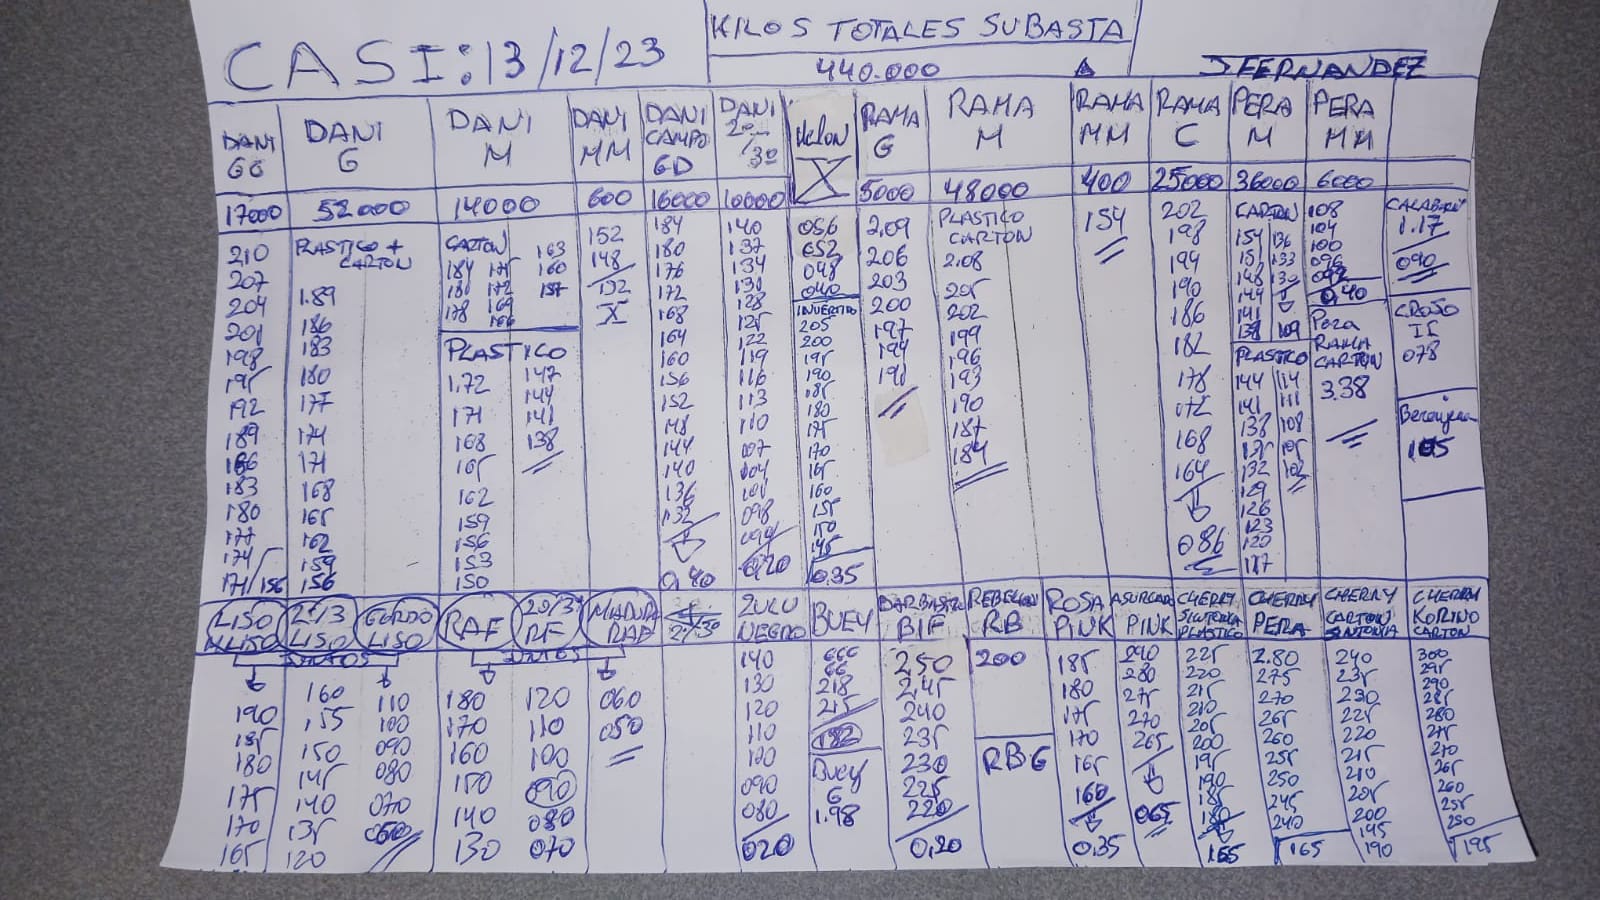 CASI: 13/12/23
KILOS TOTALES SUBASTA
440.000
JFERNANDEZ
DANI GG
17000
210
207
204
201
198
195
192
189
186
183
180
177
174
171/156
DANI G
52000
PLASTICO +
CARTON
1.89
186
183
180
177
174
171
168
165
162
159
156
DANI M
14000
CARTON
184 175 163
180 172 160
178 169 157
166
PLASTICO
1.72 147
171 144
168 141
165 138
162
159
156
153
150
DANI MM
600
152
148
132
X
DANI CAMPO GD
16000
184
180
176
172
168
164
160
156
152
148
144
140
136
132
0,40
DANI 2º /3º
10000
140
137
134
131
128
125
122
119
116
113
110
007
004
101
098
094
0,20
Melon
X
056
052
048
040
INVERTIDO
205
200
195
190
185
180
175
170
165
160
155
150
145
0.35
RAMA G
5000
2,09
206
203
200
197
194
191
RAMA M
48000
PLASTICO
CARTON
2.08
205
202
199
196
193
190
187
184
RAMA MM
400
154
RAMA C
25000
202
198
194
190
186
182
178
172
168
164
086
PERA M
36000
CARTON
154 136
151 133
148 130
144
141
138 109
PLASTICO
144 114
141 111
138 108
135 105
132 102
129
126
123
120
117
PERA MM
6000
108
104
100
096
092
0,40
Pera
RAMA
CARTON
3.38
CALABACIN
1.17
090
CROSO
II
078
Berenjena
105
LISO
MLISO
190
185
180
175
170
165
2º/3
LISO
160
155
150
145
140
135
120
GORDO
LISO
110
100
090
080
070
050
JUNTOS
RAF
180
170
160
150
140
130
2º/3º
RF
120
110
100
090
080
070
MADURO
RAF
060
050
JUNTOS
2º/3º
ZULU
NEGRO
140
130
120
110
100
090
080
020
BUEY
666
66
218
215
182
Buey
G
1.98
BARBASTRO
BIF
2,50
2,45
240
235
230
225
220
0,20
REBELION
RB
200
RBG
ROSA
PINK
185
180
175
170
165
160
0,35
ASURCADO
PINK
290
280
275
270
265
065
CHERRY
SINTONIA
PLASTICO
225
220
215
210
205
200
195
190
185
180
155
CHERRY
PERA
2.80
275
270
265
260
255
250
245
240
165
CHERRY
CARTON
SINTONIA
240
235
230
225
220
215
210
205
200
195
190
CHERRY
KORINO
CARTON
300
295
290
285
280
275
270
265
260
255
250
195